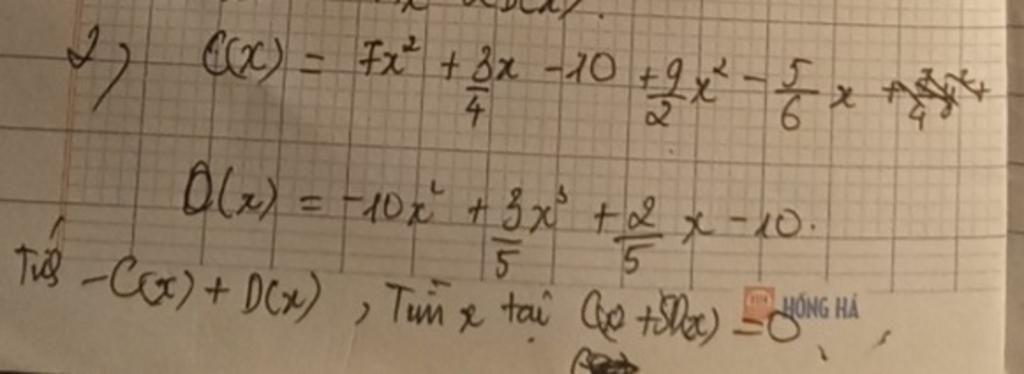 2) C(x) = 7x² + 3/4 x - 10 + 9/2 x² - 5/6 x
D(x) = -10x² + 3/5 x³ + 2/5 x - 10.
- C(x) + D(x), Tìm x tại C(x) + 5D(x) = 0
HỒNG HÀ